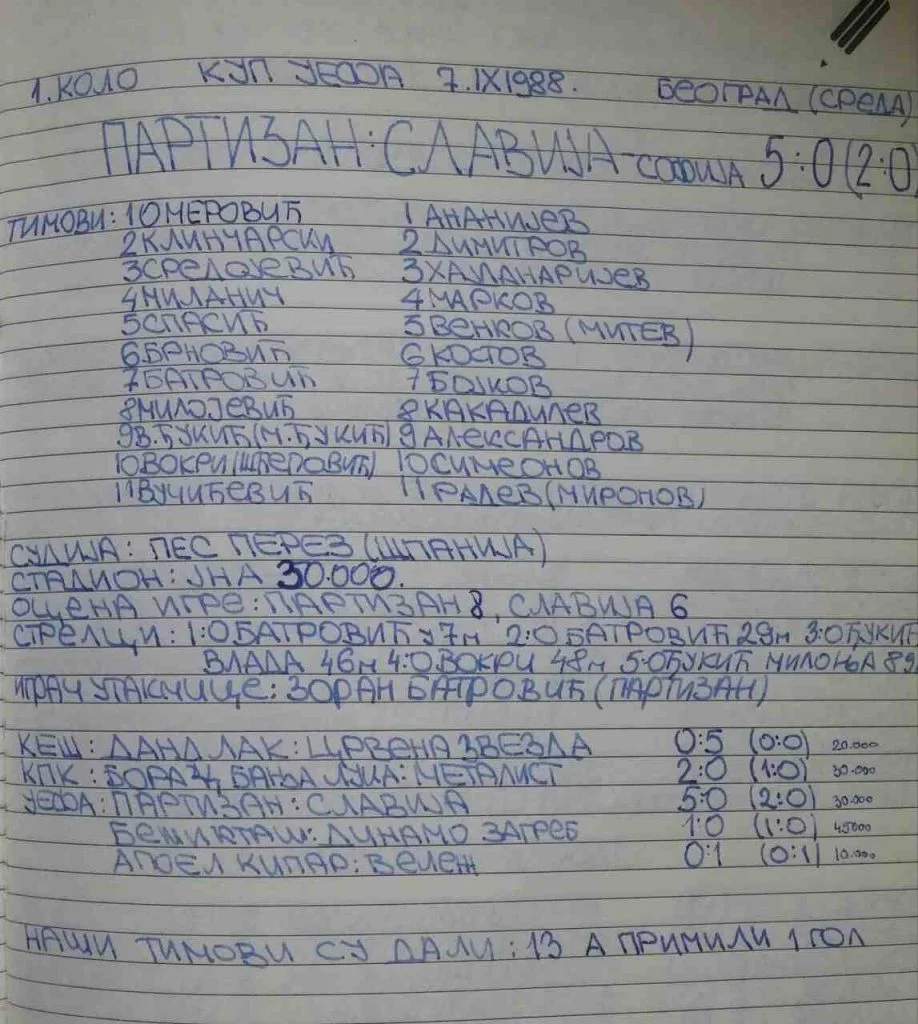 1. КОЛО КУП УЕФА 7.IX1988. БЕОГРАД (СРЕДА)
ПАРТИЗАН: СЛАВИЈА-СОФИЈА 5:0 (2:0)
ТИМОВИ: 1 ОМЕРОВИЋ 1 АНАНИЈЕВ
2 КЛИНЧАРСКИ 2 ДИМИТРОВ
3 СРЕДОЈЕВИЋ 3
4 МИЛАНИЧ 4 МАРКОВ
5 СПАСИЋ 5 ВЕНКОВ (МИТЕВ)
6 БРНОВИЋ 6 КОФОВ
7 БАТРОВИЋ 7 БОЈКОВ
8 МИЛОЈЕВИЋ 8 КАКАДИЛЕВ
9 В. ЂУКИЋ (М. ЂУКИЋ) 9 АЛЕКССАНДРОВ
10 ВОКРИ (ШЋЕПОВИЋ) 10 СИМЕОНОВ
11 ВУЧИЋЕВИЋ 11 РАДЕВ (МИРОНОВ)
СУДИЈА: ПЕС ПЕРЕЗ (ШПАНИЈА)
СТАДИОН: ЈНА 30.000.
ОЦЕНА ИГРЕ: ПАРТИЗАН 8, СЛАВИЈА 6
СТРЕЛЦИ: 1:0 БАТРОВИЋ У 7м 2:0 БАТРОВИЋ 29м 3:0 ЂУКИЋ
ВЛАДА 46м 4:0 ВОКРИ 48м 5:0 ЂУКИЋ МИЛОЊА 89
ИГРАЧ УТАКМИЦЕ: ЗОРАН БАТРОВИЋ (ПАРТИЗАН)
КЕШ: ДАНДЛАК: ЦРВЕНА ЗВЕЗДА 0:5 (0:0) 20.000
КПК: БОРАЦ, БАЊА ЛУКА: МЕТАЛИСТ 2:0 (1:0) 30.000
УЕФА: ПАРТИЗАН: СЛАВИЈА 5:0 (2:0) 30.000
БЕШИКТАШ: ДИНАМО ЗАГРЕБ 1:0 (1:0) 45000
АПОЕЛ КИПАР: ВЕЛЕЖ 0:1 (0:1) 10.000
НАШИ ТИМОВИ СУ ДАЛИ: 13 А ПРИМИЛИ 1 ГОЛ